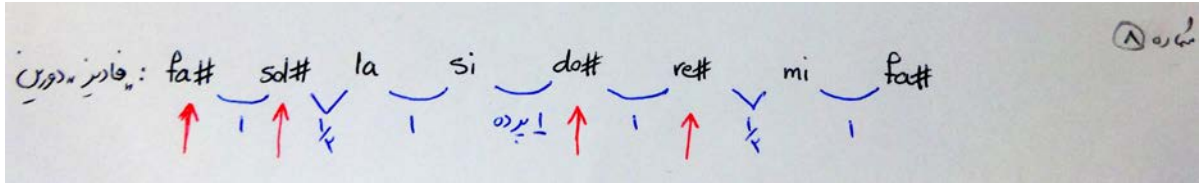 شماره ۸
فادیز دورین : fa# sol# la si do# re# mi fa#
۱ ۱/۲ ۱ ۱ پرده ۱ ۱/۲ ۱